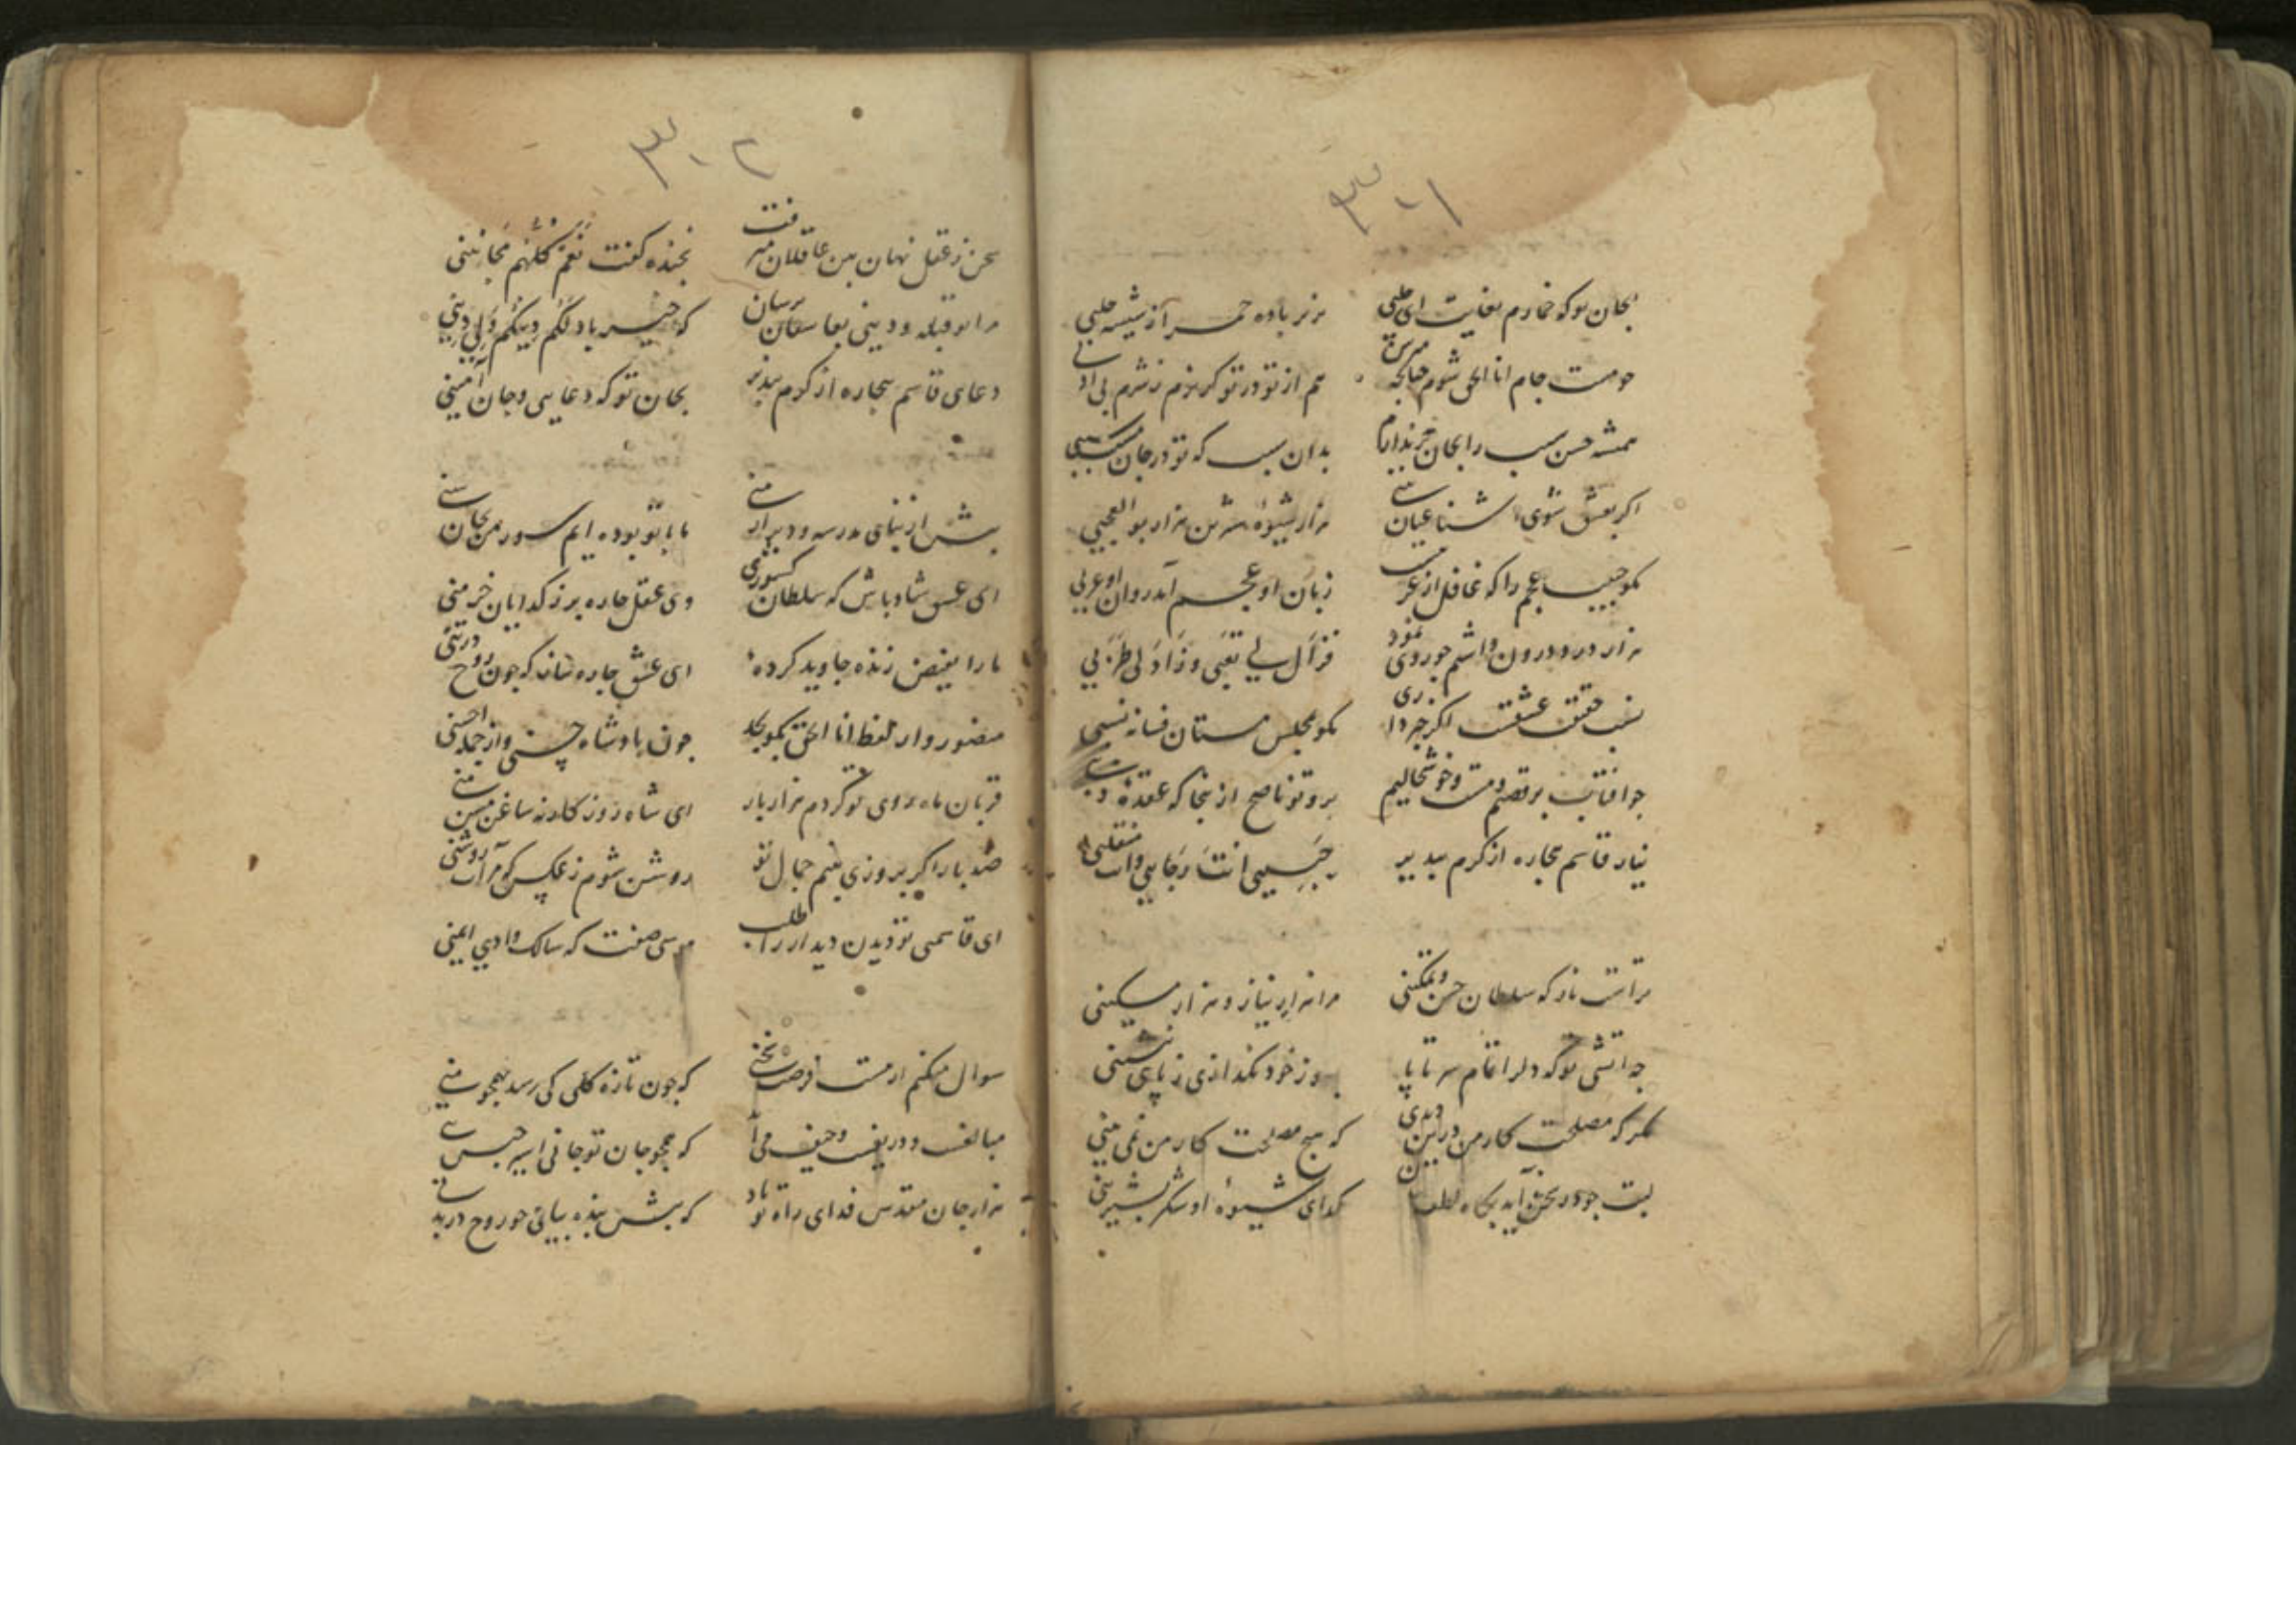 ۳۰۱
بجان تو که خمارم بغایت ای چلبی
بریز باده حمرا ز شیشه حلبی
چو مست جام انا الحق شوم
هم از تو در تو گریزم ز شرم بی ادبی
همیشه حسن سبب را بجان خریدارم
بدان سبب که تو در جان سبب
اگر بعشق شوی آشنا عیان بینی
هزار شیوه شیرین هزار بو العجبی
بگو حبیب عجم را که غافل از عربست
زبان او عجم آمد روان او عربی
هزار درد درون داشتم چو روی نمود
فزال بی تعبی و زاد لی طربی
نسب حقیقت عشقست اگر خبر داری
بگو مجلس مستان فسانه نسبی
چو افتاب برقصیم و مست و خوشحالیم
برو تو ناصح ازینجا که عقده ذنبی
نیاز قاسم بیچاره از کرم بپذیر
حبیبی انت رجایی و انت منقلبی
تراست ناز که سلطان حسن و تمکینی
مرا هزار نیاز و هزار مسکینی
چه آتشی تو که دلرا تمام سر تا پا
بسوز خود نگذاری ز پای ننشینی
مگر که مصلحت کار من درین دیدی
که هیچ مصلحت کار من نمی بینی
لبت چو در سخن آید بگاه لطف
گدای شیوه او شکر بشیرینی
۳۰۲
سخن ز عقل نهان بین عاقلان میرفت
بخنده گفت نعم کلهم مجانینی
مرا تو قبله و دینی بعاشقان برسان
که خیر باد لکم دینکم ولی دینی
دعای قاسم بیچاره از کرم بپذیر
بجان تو که دعایی و جان آمینی
پیش از بنای مدرسه و دیر ارمنی
ما با تو بوده ایم
ای عشق شاد باش که سلطان کشوری
وی عقل چاره بر ز گدایان خرمنی
ما را بفیض زنده جاوید کرده
ای عشق چاره ساز که چون روح در تنی
منصور وار لفظ انا الحق بگو بجد
چون پادشاه حسنی و از جمله احسنی
قربان ماه روی تو گردم هزار بار
ای شاه
صد بار اگر بروزی بینم جمال تو
روشن شوم ز عکس که مرآت روشنی
ای قاسمی تو دیدن دیدار را طلب
موسی صفت که سالک وادی ایمنی
سوال میکنم از مست فرصت سخنی
که چون تازه گلی کی رسد بهمچو منی
مبالغست و دریغست و حیف می آید
که همچو جان تو جانی اسیر حبس تنی
هزار جان مقدس فدای راه تو باد
که پیش بنده بیائی چو روح در بدنی